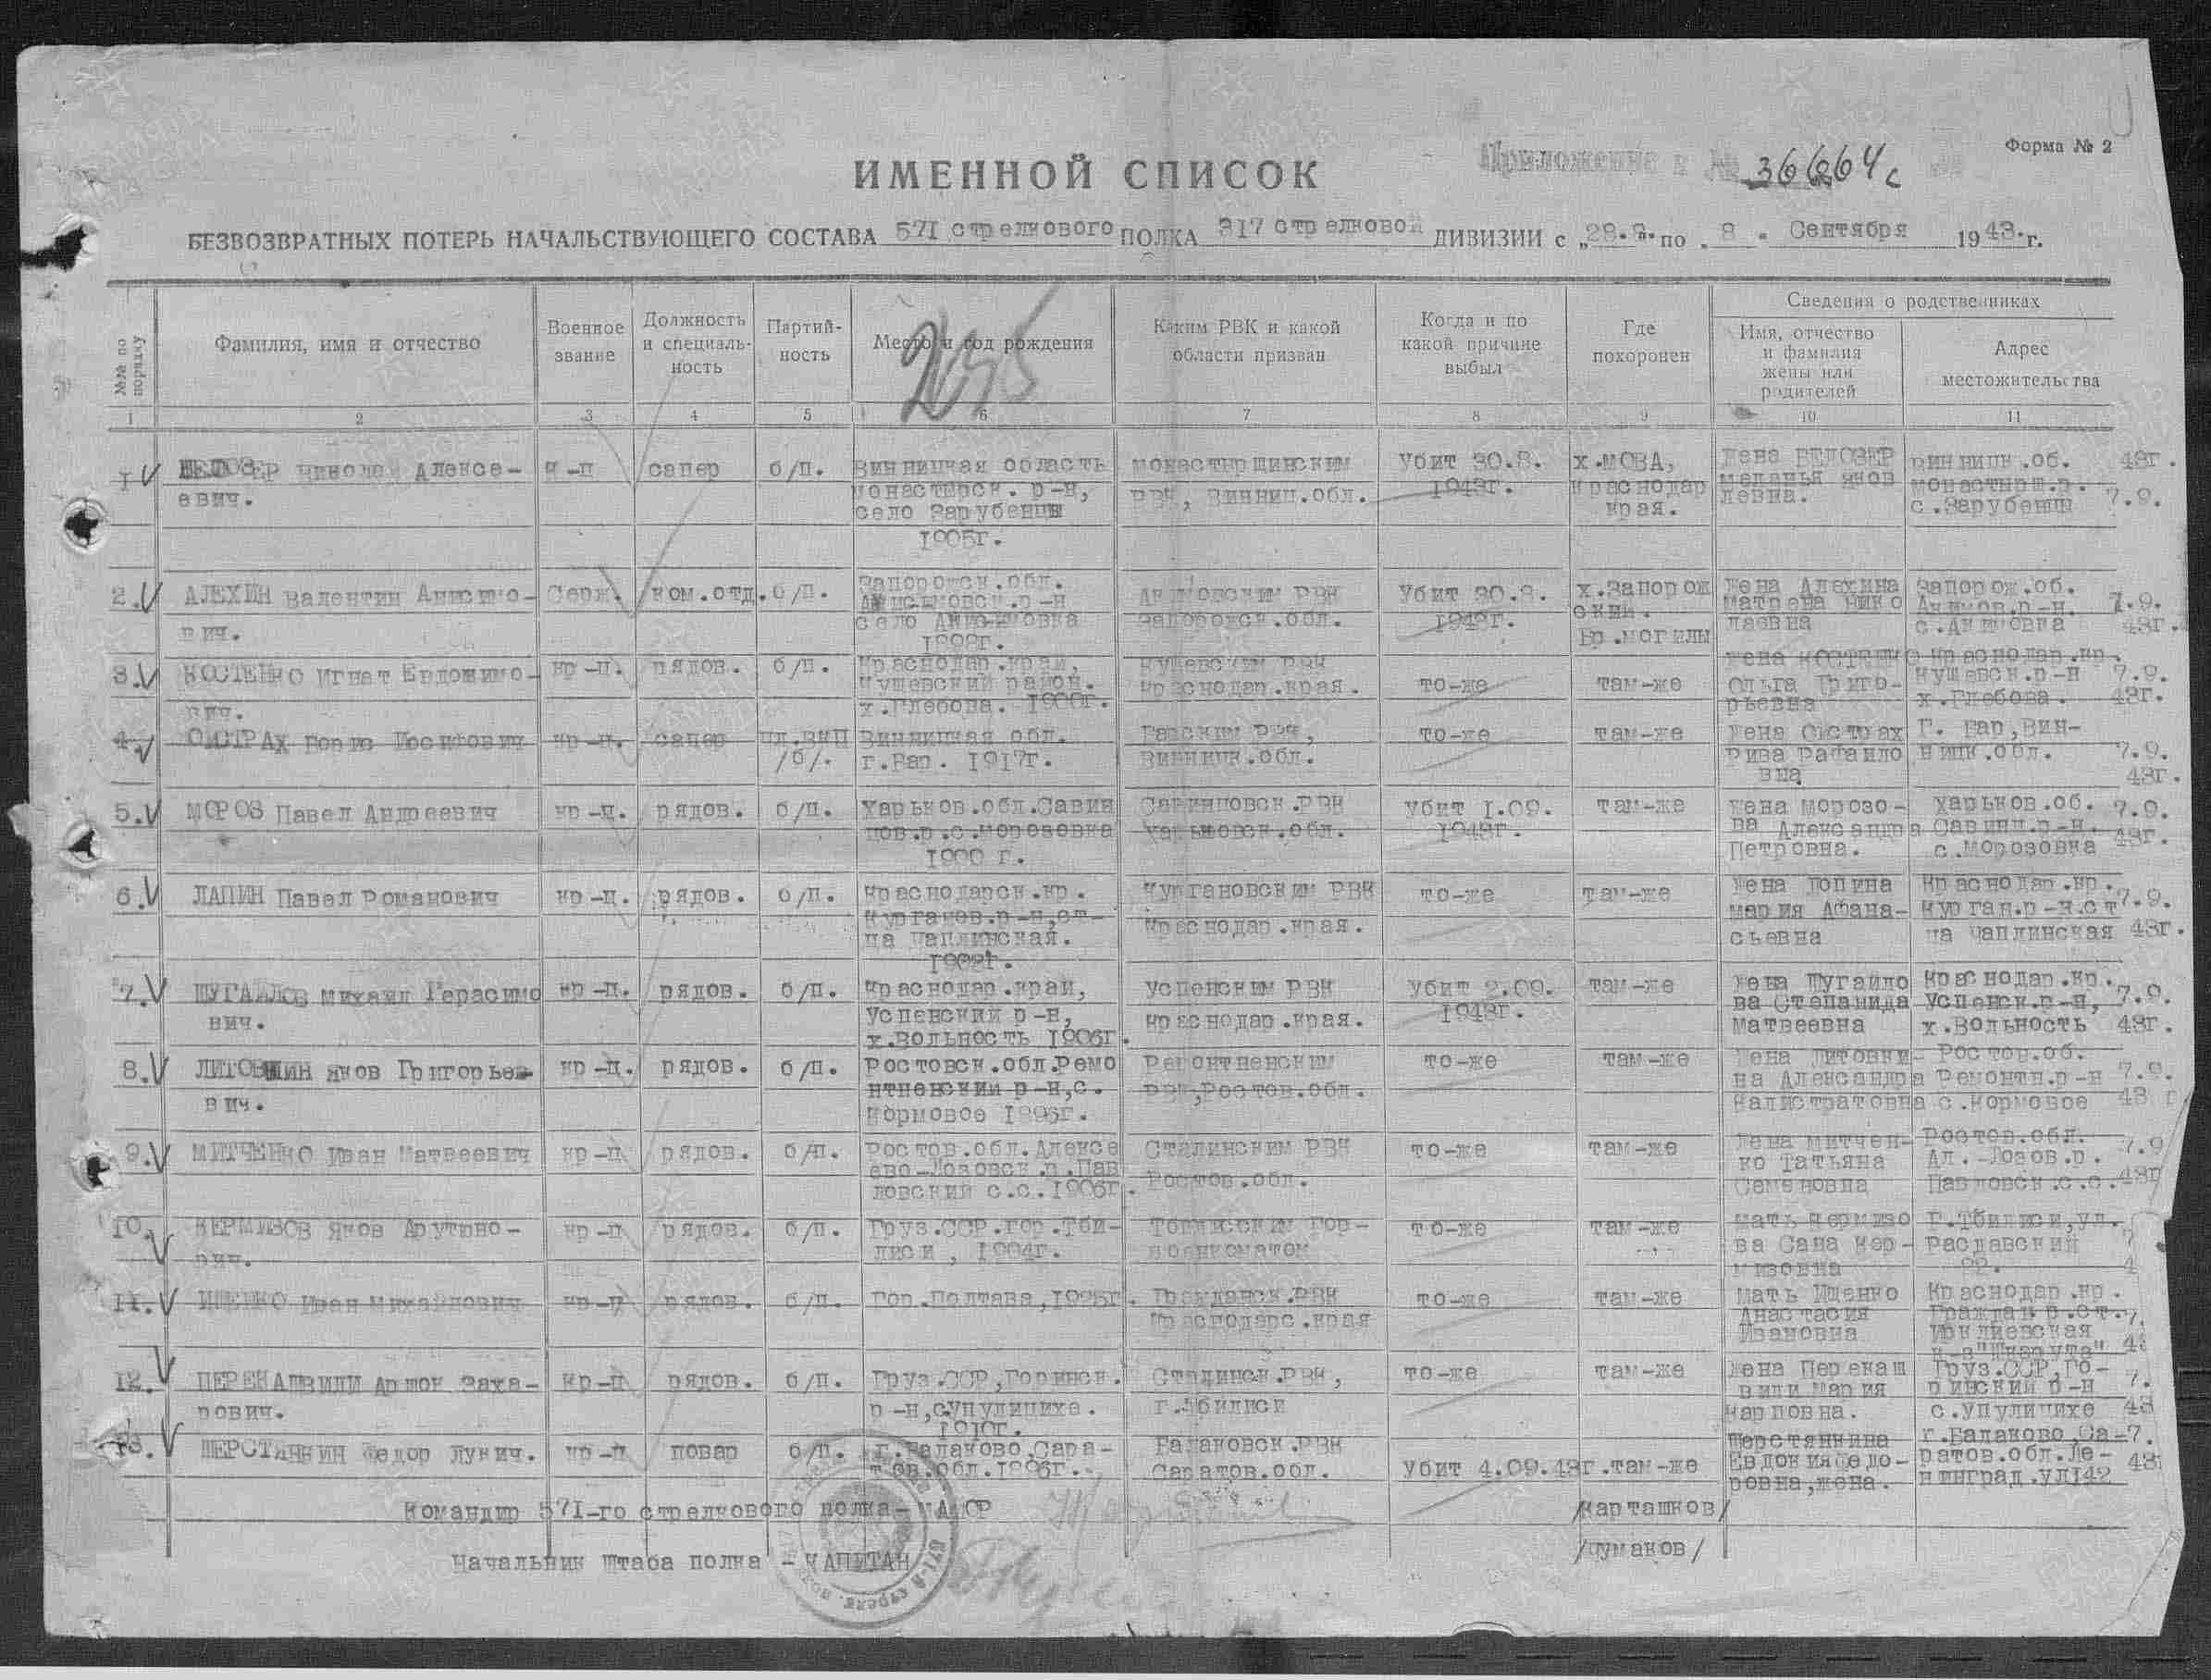 Форма № 2
Приложение к № 36664с
ИМЕННОЙ СПИСОК
БЕЗВОЗВРАТНЫХ ПОТЕРЬ НАЧАЛЬСТВУЮЩЕГО СОСТАВА 571 стрелкового ПОЛКА 317 стрелковой ДИВИЗИИ с „28.8." по „8" Сентября 1943.г.
№№ по порядку
Фамилия, имя и отчество
Военное звание
Должность и специальность
Партийность
Место и год рождения
Каким РВК и какой области призван
Когда и по какой причине выбыл
Где похоронен
Сведения о родственниках
Имя, отчество и фамилия жены или родителей
Адрес местожительства
1 2 3 4 5 6 7 8 9 10 11
1 БЕЛОЗЕР Николай Алексе- к-ц сапер б/п. Винницкая область Монастырщинским Убит 30.8. х.МОВА, Жена БЕЛОЗЕР Винницк.об. 43г.
евич. Монастырск. р-н, РВК, Винниц.обл. 1943г. Краснодар Меланья Яков Монастырщ.р.
село Зарубенцы края. левна. с.Зарубенцы 7.9.
1905г.
2. АЛЕХИН Валентин Анисимо- Серж. ком.отд. б/п. Запорожск.обл. Акимовским РВК Убит 30.8. х.Запорож Жена Алехина Запорож.об. 7.9.
вич. р-н Запорожск.обл. 1943г. ский. Матрена Нико Акимов.р-н. 43г.
село Акимовка Бр.могилы лаевна с.Акимовка
1898г.
3. КОСТЕНКО Игнат Евдокимо- кр-ц. рядов. б/п. Краснодар.край, Кущевским РВК то-же там-же Жена Костенко Краснодар.кр. 7.9.
вич. Кущевский район. Краснодар.края. Ольга Григо- Кущевск.р-н 43г.
х.Глебова. 1900г. рьевна х.Глебова.
4. СИСТРАХ Борис Иосифович кр-ц. сапер чл.ВКП Винницкая обл. Барским РВК, то-же там-же Жена Систрах г. Бар, Вин-
/б/. г.Бар. 1917г. Винницк.обл. Рива Рафаило ницк.обл. 7.9.
вна 43г.
5. МОРОЗ Павел Андреевич кр-ц. рядов. б/п. Харьков.обл.Савин Савинцовск.РВК Убит 1.09. там-же Жена Морозо- Харьков.об. 7.9.
цов.р.с.Морозовка Харьковск.обл. 1943г. ва Александра Савинц.р-н. 43г.
1900 г. Петровна. с.Морозовка
6. ЛАПИН Павел Романович кр-ц. рядов. б/п. Краснодарск.кр. Кургановским РВК то-же там-же Жена Лопина Краснодар.кр. 7.9.
Курганов.р-н,ст- Краснодар.края. Мария Афана- Курган.р-н.ст
ца Чаплинская. сьевна ца Чаплинская 43г.
7. ШУГАЙЛОВ Михаил Герасимо кр-ц. рядов. б/п. Краснодар.край, Успенским РВК Убит 2.09. там-же Жена Шугайло Краснодар.кр. 7.9.
вич. Успенский р-н, Краснодар.края. 1943г. ва Степанида Успенск.р-н,
х.Вольность 1906г. Матвеевна х.Вольность 43г.
8. ЛИТОВКИН Яков Григорье- кр-ц. рядов. б/п. Ростовск.обл.Ремо Ремонтненским то-же там-же Жена Литовки- Ростов.об. 7.9.
вич. нтневский р-н,с. РВК,Ростов.обл. на Александра Ремонтн.р-н
Кормовое 1896г. Калистратовна с.Кормовое 43 г
9. МИТЧЕНКО Иван Матвеевич кр-ц рядов. б/п. Ростов.обл.Алексе Сталинским РВК то-же там-же Жена Митчен- Ростов.обл. 7.9
ево-Лозовск.р.Пав Ростов.обл. ко Татьяна Ал.-Лозов.р.
ловский с.с.1906г. Семеновна Павловск.с.с. 43г
10. КЕРМИЗОВ Яков Арутюно- кр-ц рядов. б/п. Груз.ССР.гор.Тби- Тбилисским Гор- то-же там-же Мать Кермизо г.Тбилиси,ул.
вич. лиси, 1904г. военкоматом ва Сана Кер- Раславский
мизовна 22.
11. ИЩЕНКО Иван Михайлович кр-ц рядов. б/п. гор.Полтава,1925г. Гражданск.РВК то-же там-же Мать Ищенко Краснодар.кр.
Краснодарс.края Анастасия Граждан.р.ст. 7.
Ивановна
12. ПЕРЕКАШВИЛИ Аршок Заха- кр-ц рядов. б/п. Груз.ССР,Горийск. Сталинск.РВК, то-же там-же Жена Перекаш Груз.ССР,Го- 7.
рович. р-н,с.упулицихе. г.Тбилиси вили Мария рийский р-н
1910г. Карповна. с.упулицихе 43
13. ШЕРСТЯНКИН Федор Лукич. кр-ц повар б/п. г.Балаково,Сара- Балаковск.РВК Убит 4.09.43г. там-же Шерстянкина г.Балаково,Са- 7.
тов.обл.1896г. Саратов.обл. Евдокия Федо- ратов.обл.Ле- 43г
ровна,жена. нинград.ул142
Командир 571-го стрелкового полка- МАЙОР /Карташков/
Начальник штаба полка - КАПИТАН /Чумаков/